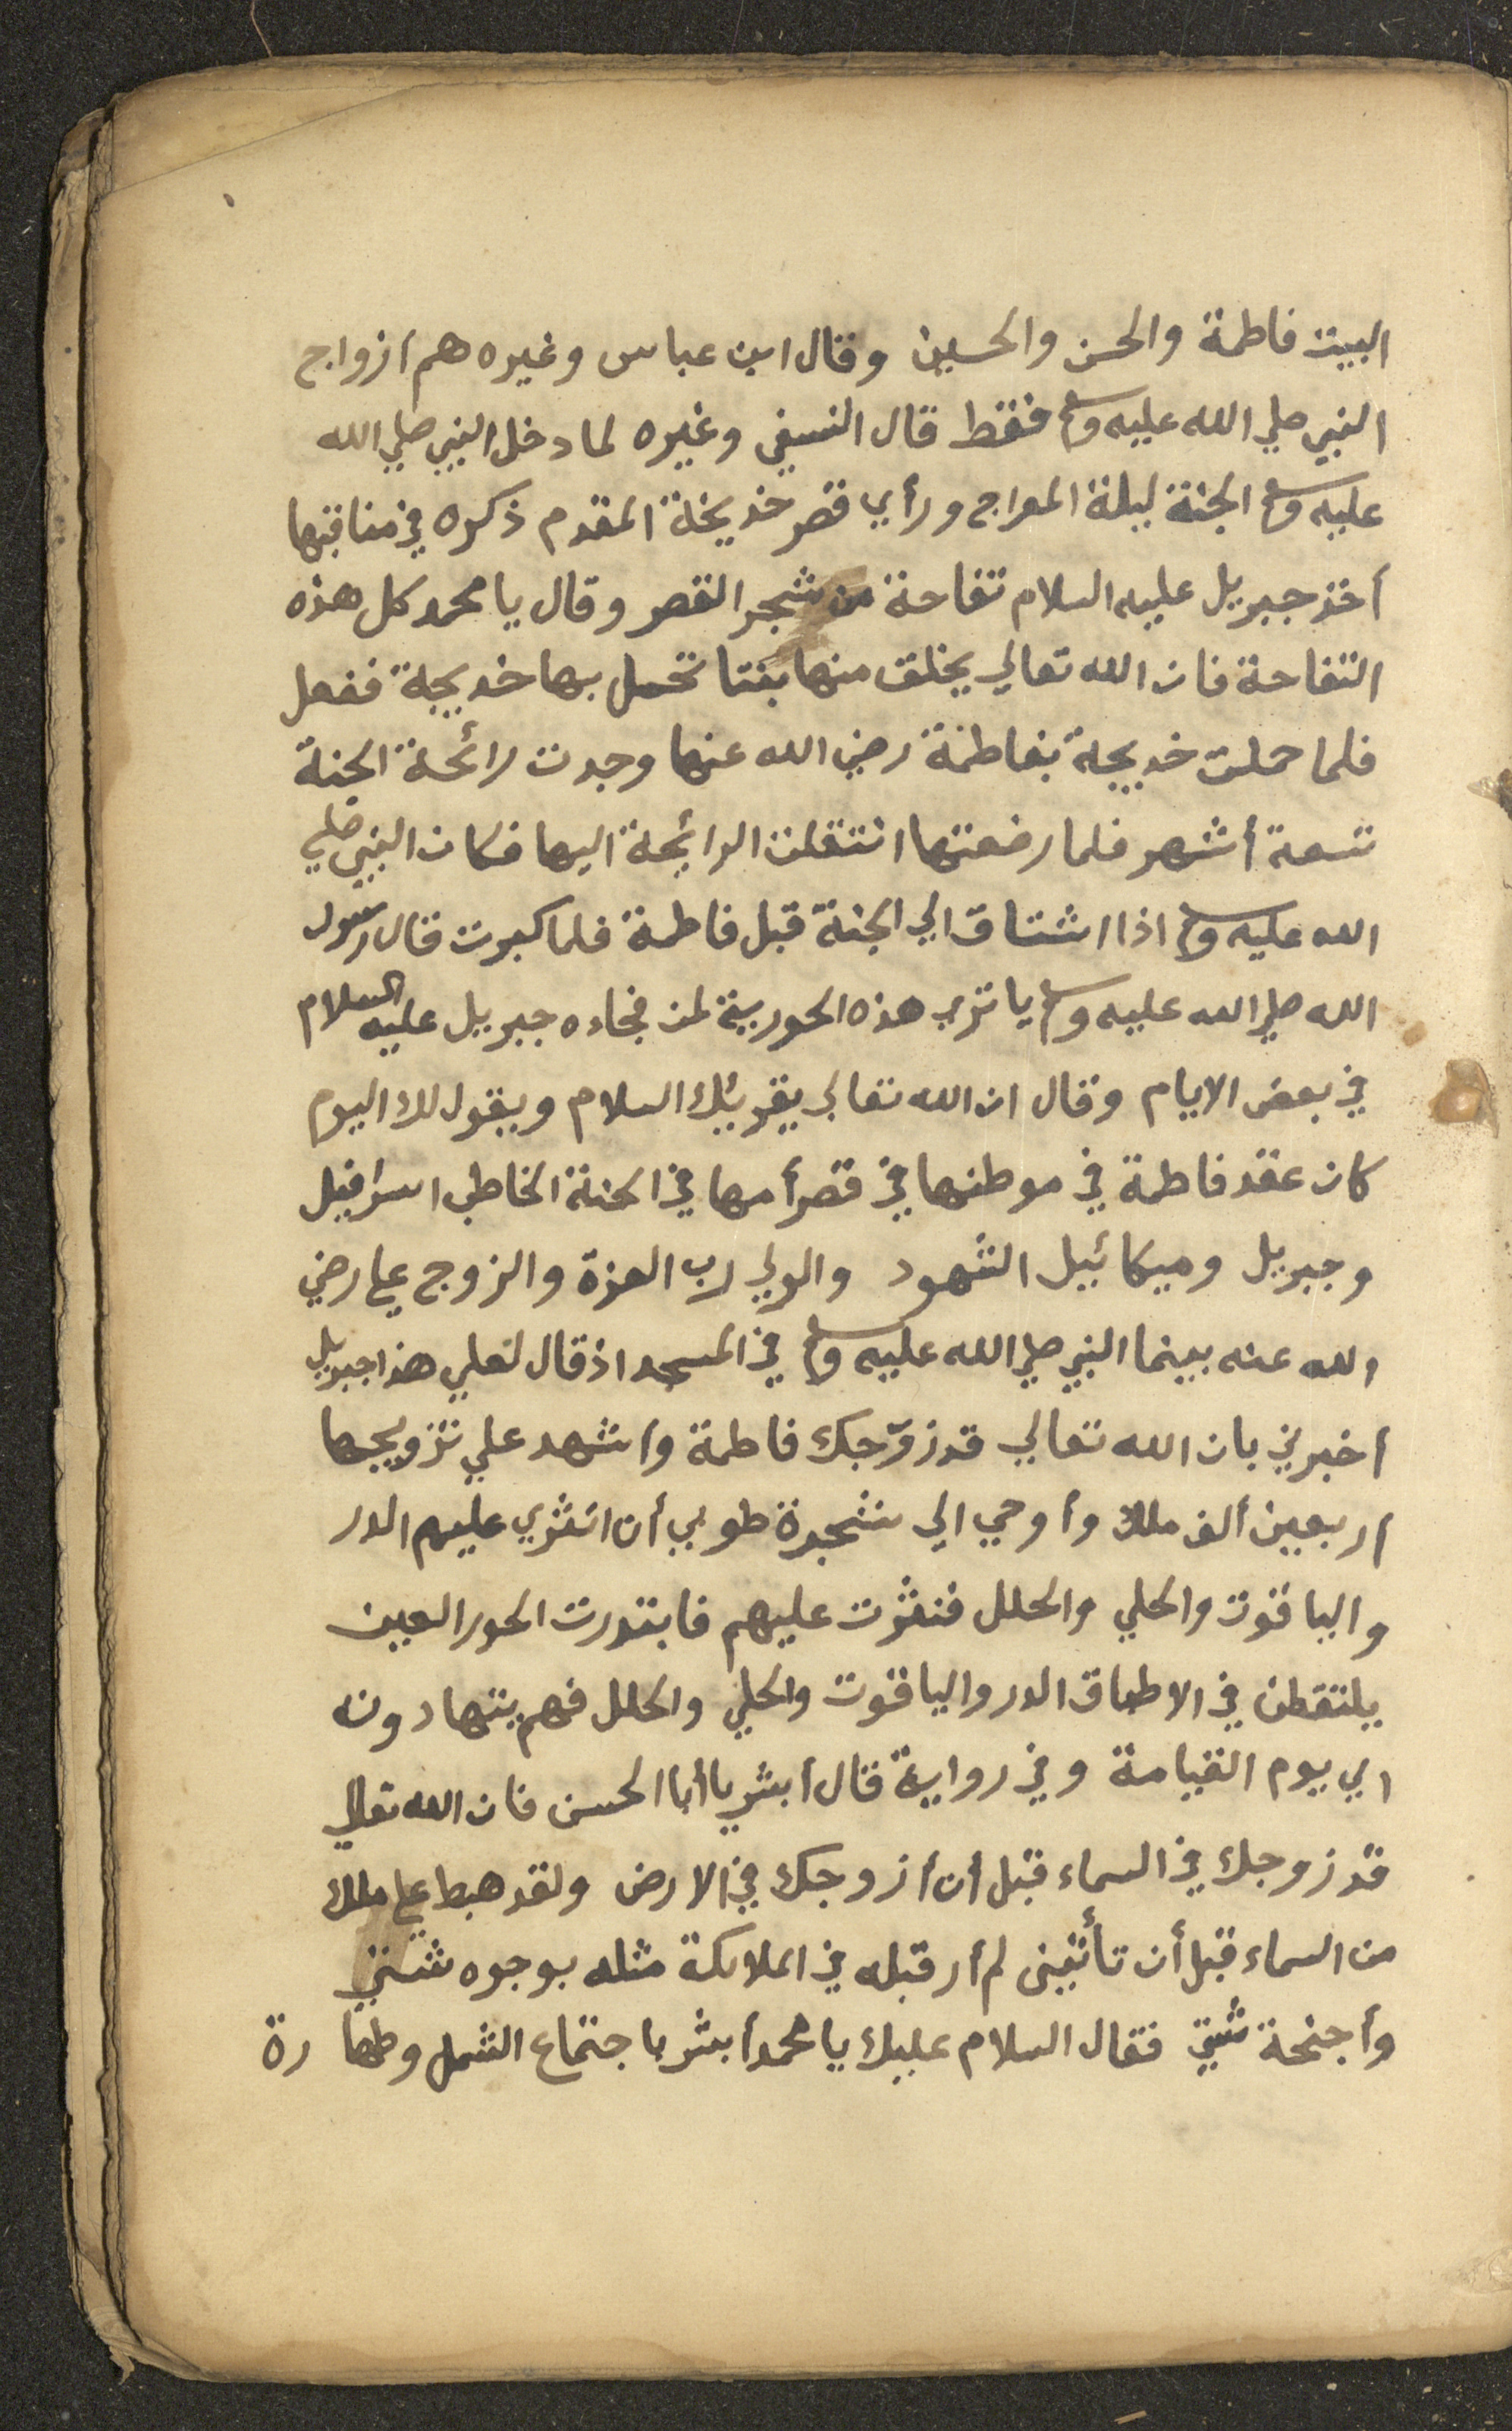 البيت فاطمة والحسن والحسين وقال ابن عباس وغيره هم ازواج
النبي صلي الله عليه وسلم فقط قال النسفي وغيره لما دخل النبي صلي الله
عليه وسلم الجنة ليلة المعراج ورأي قصر خديجة المقدم ذكره في مناقبها
أخذ جبريل عليه السلام تفاحة من شجر القصر وقال يا محمد كل هذه
التفاحة فان الله تعالي يخلق منها بنتا تحمل بها خديجة ففعل
فلما حملت خديجة بفاطمة رضي الله عنها وجدت رائحة الجنة
تسعة أشهر فلما رضعتها انتقلت الرائحة اليها فكان النبي صلي
الله عليه وسلم اذا اشتاق الي الجنة قبل فاطمة فلما كبرت قال رسول
الله صلي الله عليه وسلم يا تري هذه الحورية لمن فجاءه جبريل عليه السلام
في بعض الايام وقال ان الله تعالي يقرئك السلام ويقول لك اليوم
كان عقد فاطمة في موطنها في قصر أمها في الجنة الخاطب اسرافيل
وجبريل وميكائيل الشهود والولي رب العزة والزوج علي رضي
الله عنه بينما النبي صلي الله عليه وسلم في المسجد اذ قال لعلي هذا جبريل
أخبرني بان الله تعالي قد زوّجك فاطمة وأشهد علي تزويجها
أربعين ألف ملك وأوحي الي شجرة طوبي أن انثري عليهم الدر
والياقوت والحلي والحلل فنثرت عليهم فابتدرت الحور العين
يلتقطن في الاطباق الدر والياقوت والحلي والحلل فهم يتهادونه
الي يوم القيامة وفي رواية قال أبشر يا أبا الحسن فان الله تعالي
قد زوجك في السماء قبل أن أزوجك في الارض ولقد هبط علي ملك
من السماء قبل أن تأتيني لم أر قبله في الملائكة مثله بوجوه شتي
وأجنحة شتي فقال السلام عليك يا محمد أبشر باجتماع الشمل وطهارة